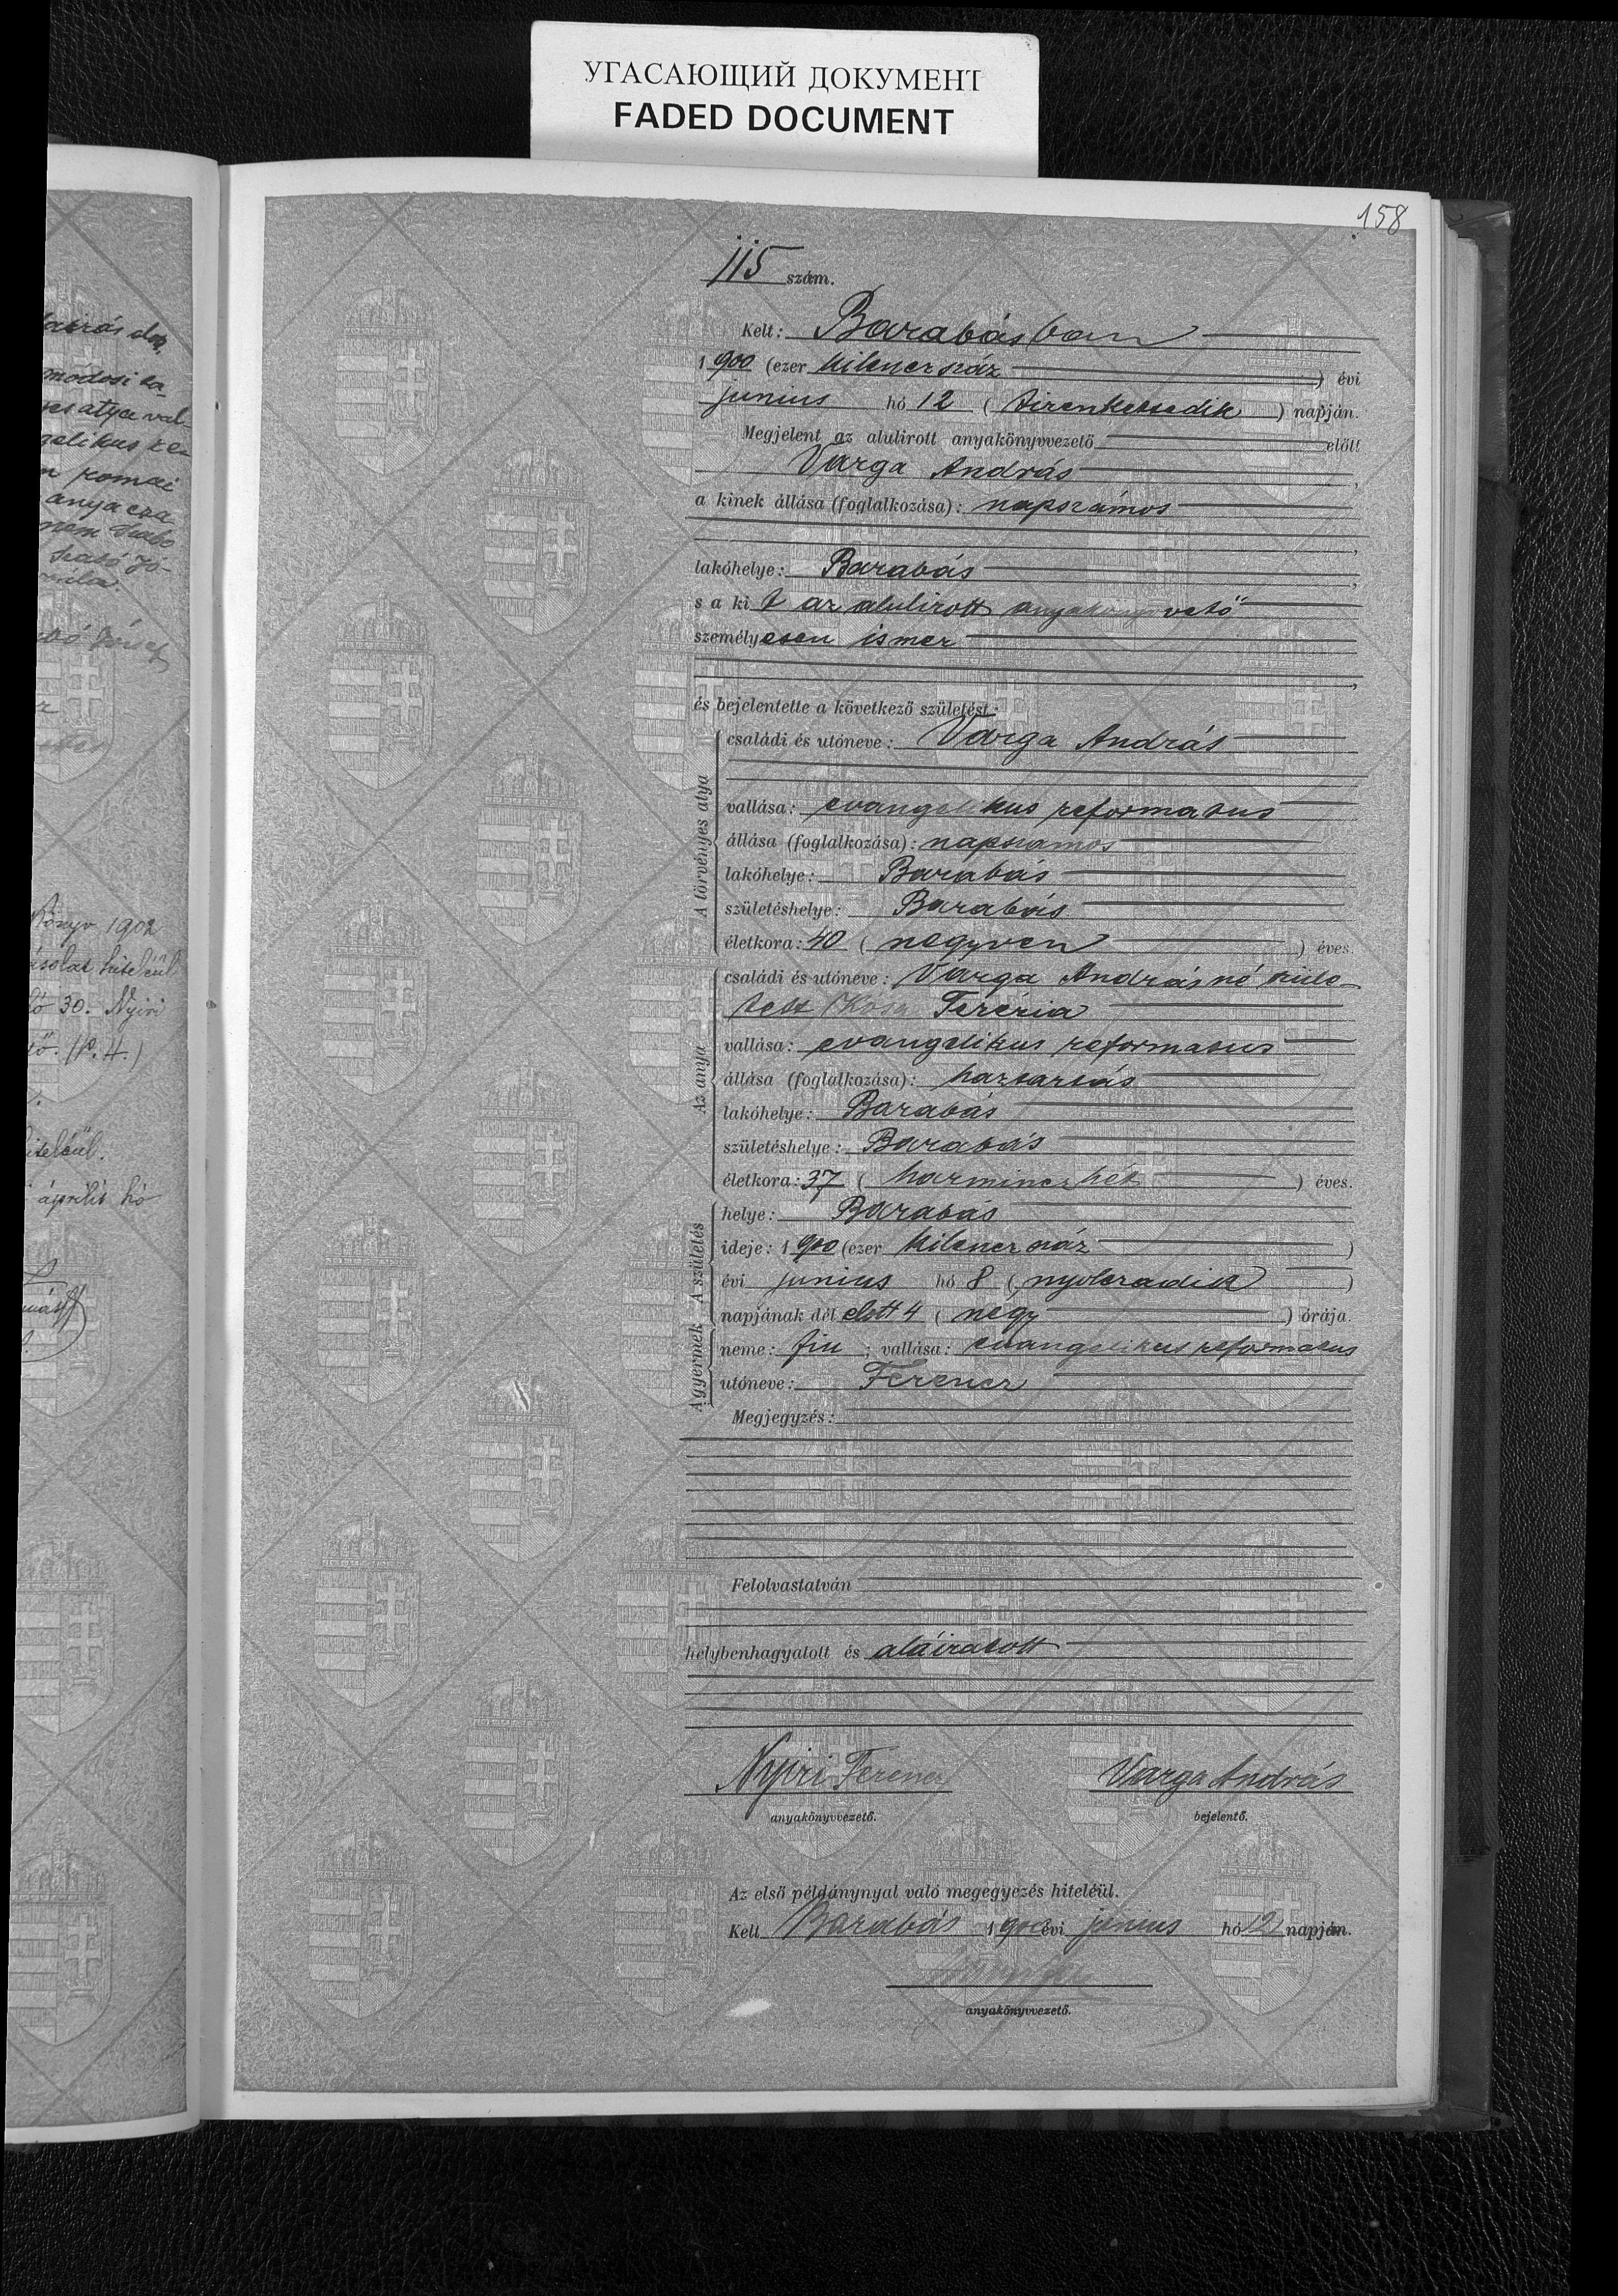 УГАСАЮЩИЙ ДОКУМЕНТ
FADED DOCUMENT
158
115 szám.
Kelt: Barabásban
1900 (ezer kilencz száz) évi
junius hó 12 (tizenkettedik) napján.
Megjelent az alulirott anyakönyvvezető előtt
Varga András,
a kinek állása (foglalkozása): napszámos
lakóhelye: Barabás,
s a kit az alulirott anyakönyvvető
személyesen ismer
és bejelentette a következő születést:
A törvényes atya
családi és utóneve: Varga András
vallása: evangelikus reformatus
állása (foglalkozása): napszamos
lakóhelye: Barabás
születéshelye: Barabás
életkora: 40 (negyven) éves.
Az anya
családi és utóneve: Varga Andrásné szüle-
tett Kosa Terézia
vallása: evangelikus reformatus
állása (foglalkozása): haztartás
lakóhelye: Barabás
születéshelye: Barabás
életkora: 37 (harmincz hét) éves.
A születés
helye: Barabás
ideje: 1900 (ezer kilencz száz)
évi junius hó 8 (nyolczadik)
napjának dél elott 4 (négy) órája.
A gyermek
neme: fiu; vallása: evangelikus reformatus
utóneve: Ferencz
Megjegyzés:
Felolvastatván
helybenhagyatott és aláiratott
Nyiri Ferencz Varga András
anyakönyvvezető. bejelentő.
Az első példánynyal való megegyezés hiteléül.
Kelt Barabás 1900 évi junius hó 12 napján.
anyakönyvvezető.
módosi ta-
atya val-
romai
anya
nem Szabo
Szabó Jó-
könyv 1902
hiteléül
30. Nyiri
(P. H.)
hiteléül.
április hó